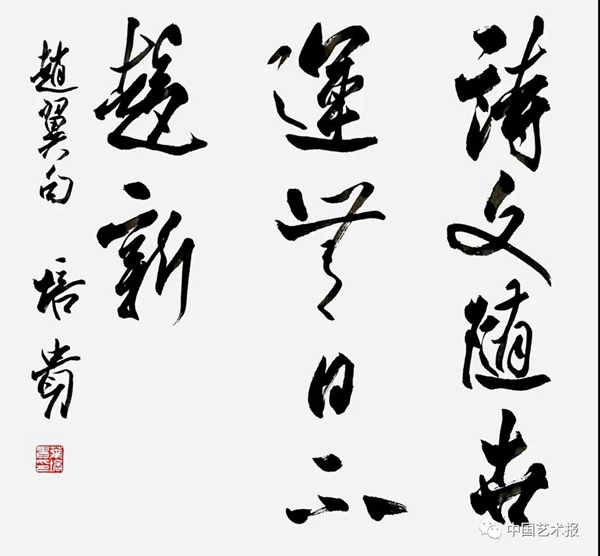 詩文随世
運無日不
趨新
趙翼句 培貴
中国艺术报